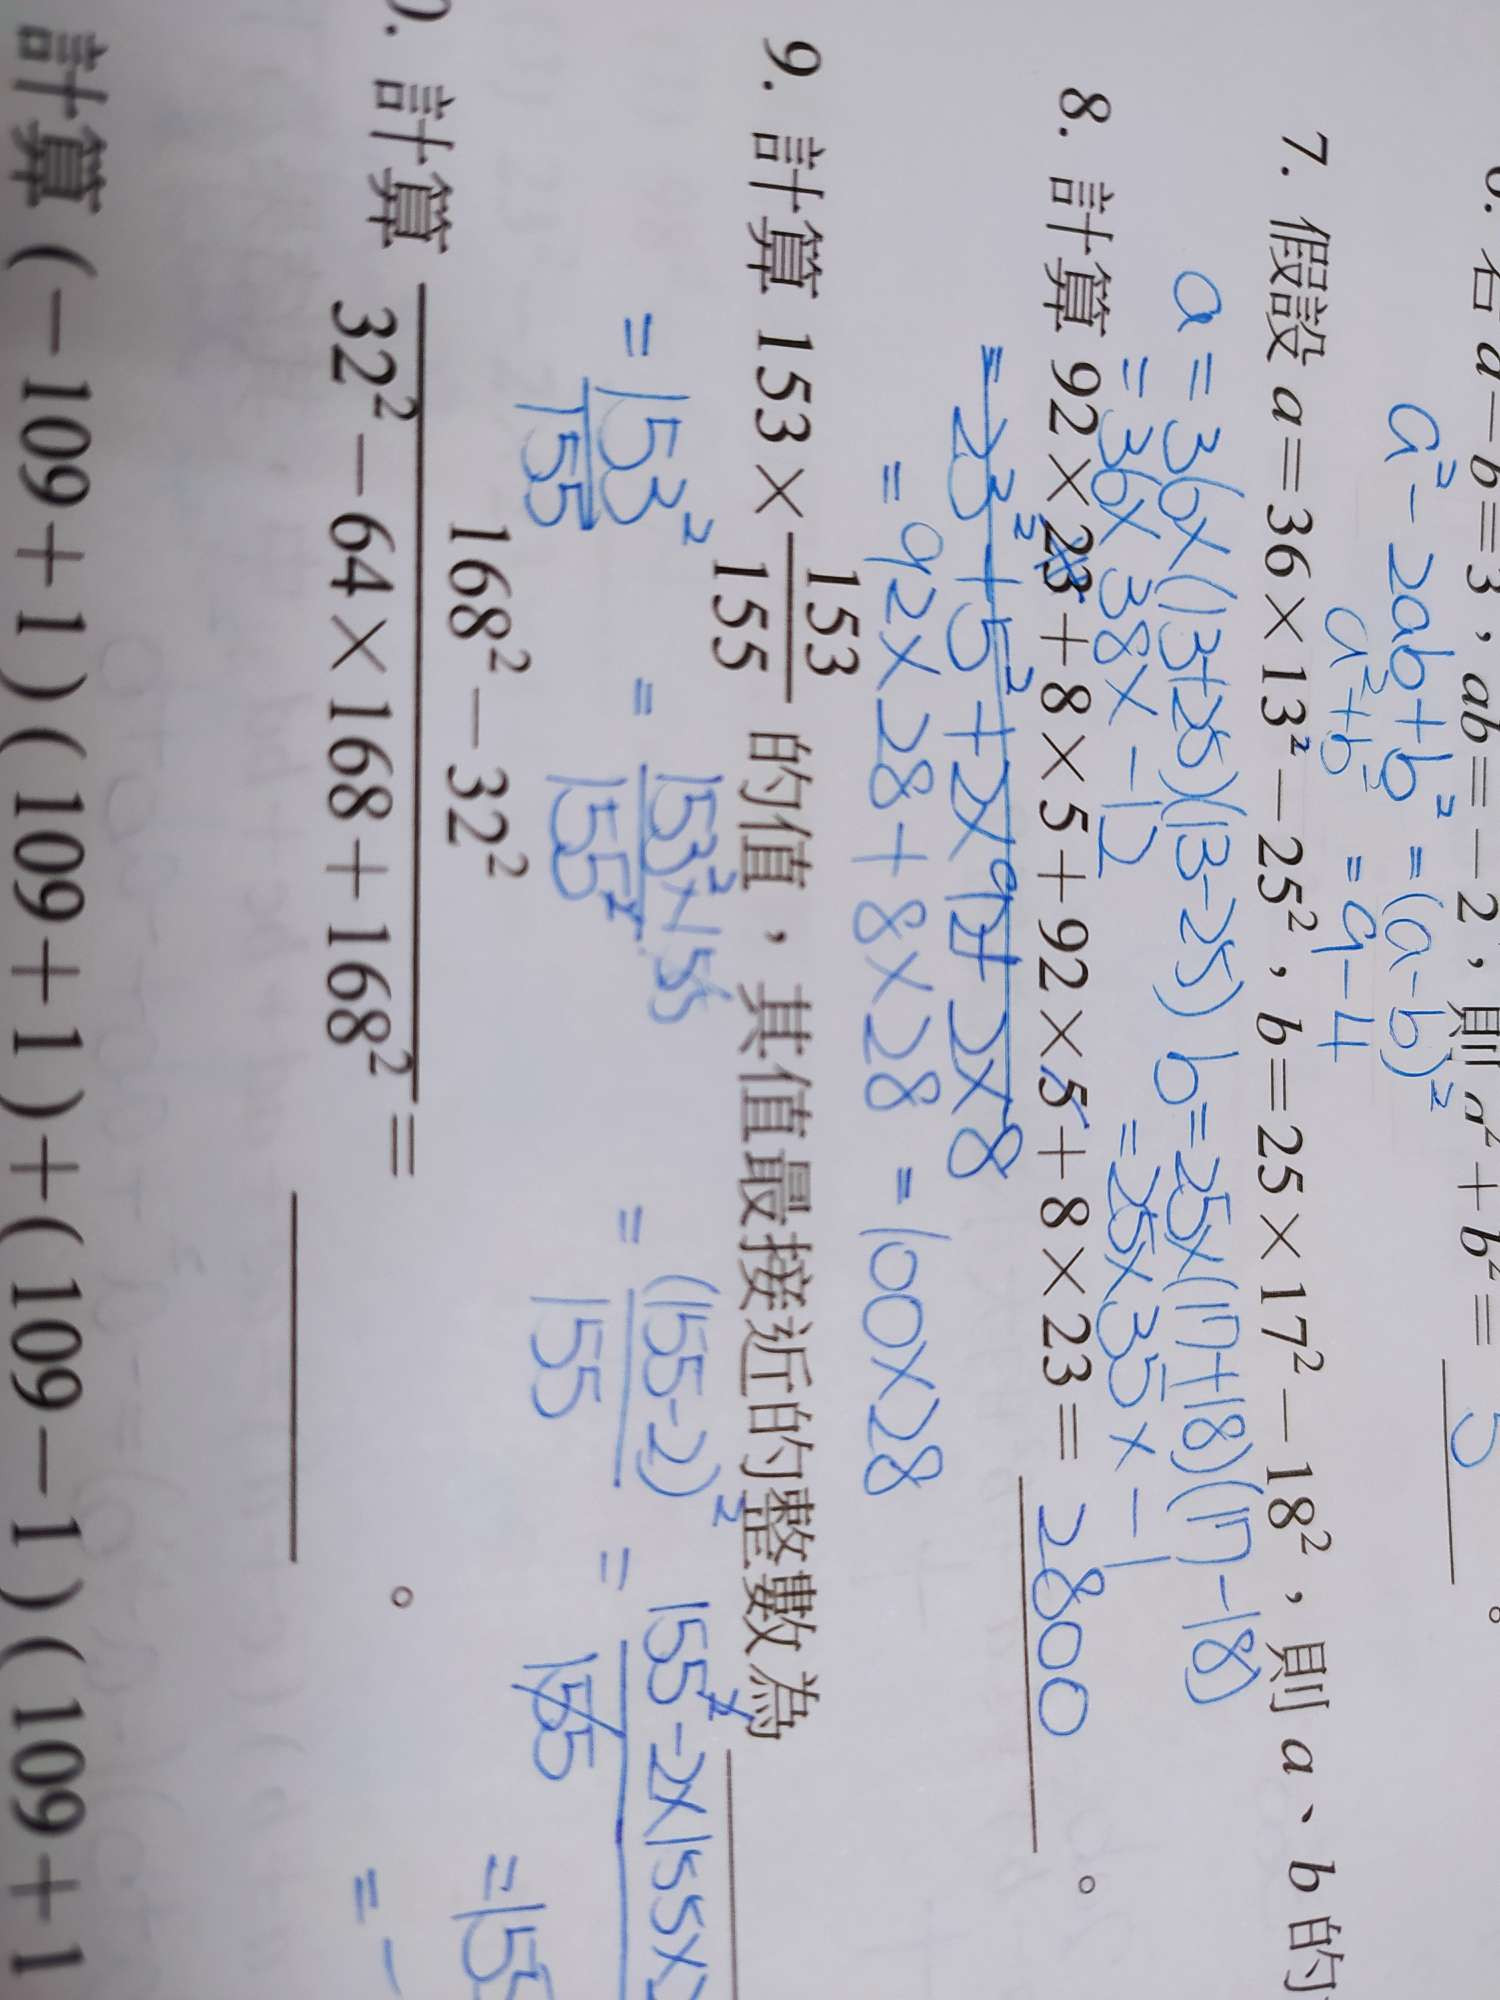 若 a－b＝3，ab＝－2，則 a²＋b²＝ 5 。
a²－2ab＋b² ＝(a－b)²
a²＋b² ＝9－4
7. 假設 a＝36×13²－25²，b＝25×17²－18²，則 a、b 的
a＝36×(13+25)(13－25) b＝25×(17+18)(17－18)
＝36×38×－12 ＝25×35×－1
8. 計算 92×23＋8×5＋92×5＋8×23＝ 2800 。
＝92×28＋8×28 ＝100×28
9. 計算 153×153/155 的值，其值最接近的整數為
＝153²/155 ＝153²×155/155² ＝(155－2)²/155 ＝155²－2×155×
計算 (168²－32²)/(32²－64×168＋168²)＝ 。
計算 (－109＋1)(109＋1)＋(109－1)(109＋1